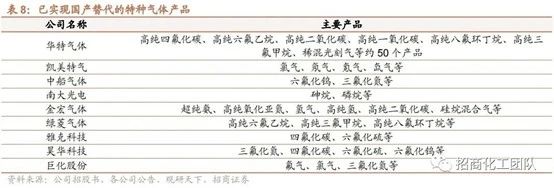 表 8：已实现国产替代的特种气体产品
公司名称 主要产品
华特气体 高纯四氟化碳、高纯六氟乙烷、高纯二氧化碳、高纯一氧化碳、高纯八氟环丁烷、高纯三
氟甲烷、稀混光刻气等约 50 个产品
凯美特气 氩气、氖气、氪气、氙气等
中船气体 六氟化钨、三氟化氮等
南大光电 砷烷、磷烷等
金宏气体 超纯氨、高纯氧化亚氮、氢气、高纯氢、高纯二氧化碳、硅烷混合气等
绿菱气体 高纯六氟乙烷、高纯三氟甲烷、高纯八氟环丁烷等
雅克科技 四氟化碳、六氟化硫等
昊华科技 三氟化氮、四氟化碳、六氟化硫、六氟化钨等
巨化股份 氟气、氯气、三氟化氮等
资料来源：公司招股书、各公司公告、观研天下、招商证券
招商化工团队